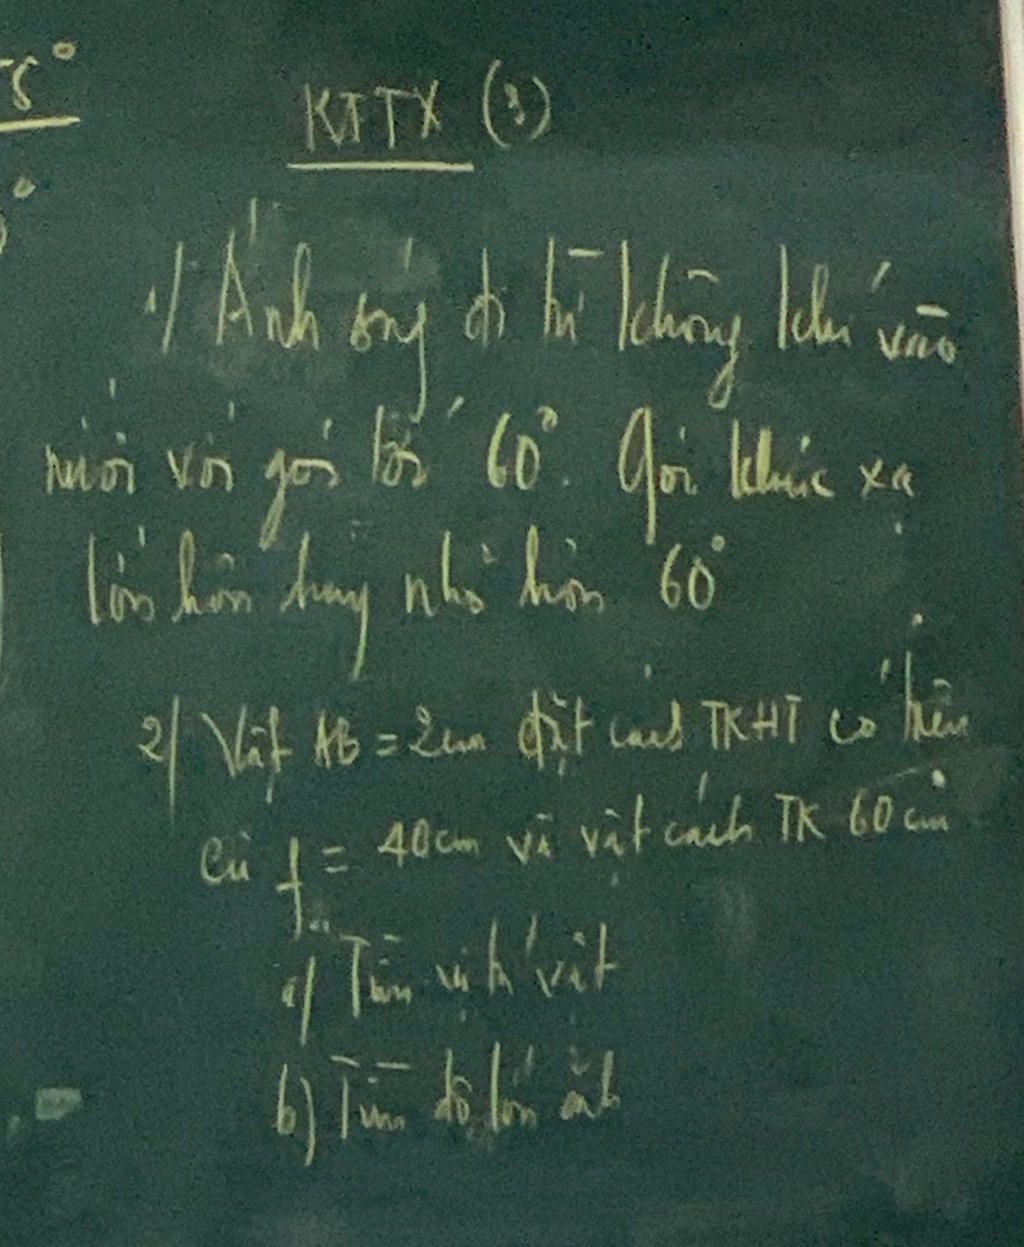 5°
KTTX (3)
1/ Ánh sáng đi từ không khí vào
nước với góc tới 60°. Góc khúc xạ
lớn hơn hay nhỏ hơn 60°
2/ Vật AB = 2cm đặt cách TKHT có tiêu
cự f = 40cm và vật cách TK 60cm
a/ Tìm vị trí vật
b) Tìm độ lớn ảnh